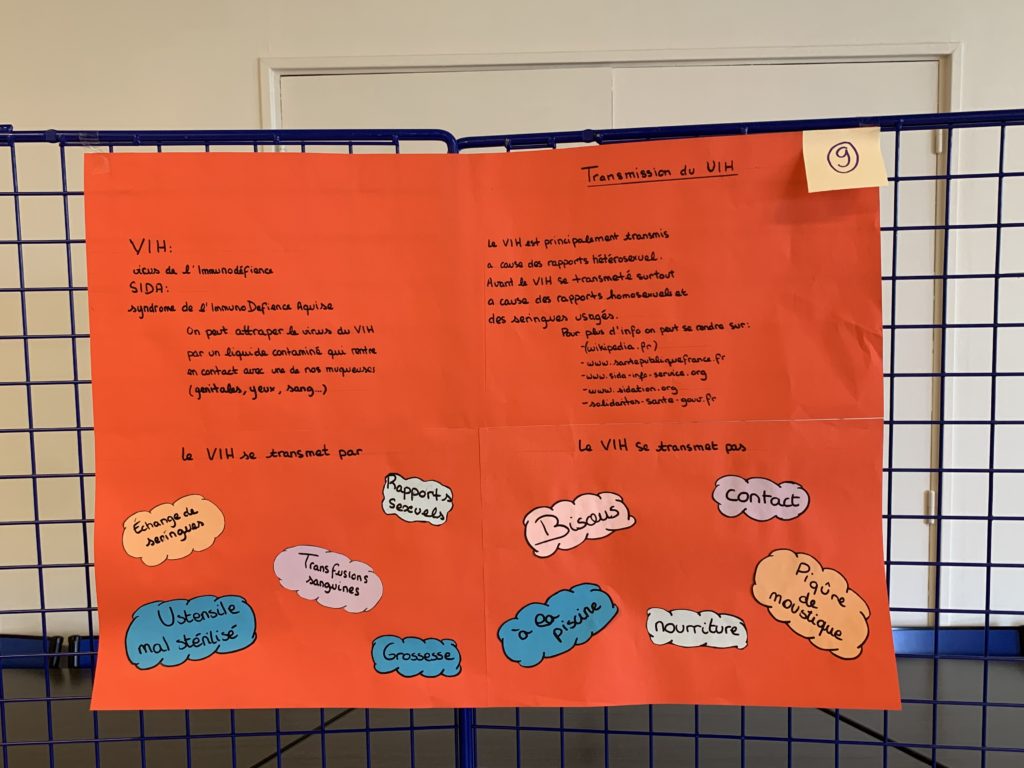 Transmission du VIH
9
VIH:
virus de l'Immunodéfience
SIDA:
syndrome de l'ImmunoDefience Aquise
On peut attraper le virus du VIH
par un liquide contaminé qui rentre
en contact avec une de nos muqueuses
(genitales, yeux, sang...)
Le VIH est principalement transmis
a cause des rapports hétérosexuel.
Avant le VIH se transmeté surtout
a cause des rapports homosexuels et
des seringues usagés.
Pour plus d'info on peut se rendre sur:
-(wikipedia.fr)
-www.santepubliquefrance.fr
-www.sida-info-service.org
-www.sidation.org
-solidarites-sante-gouv.fr
Le VIH se transmet par
Échange de
seringues
Rapports
sexuels
Transfusions
sanguines
Ustensile
mal stérilisé
Grossesse
Le VIH se transmet pas
Bisous
contact
à la
piscine
nourriture
Piqûre
de
moustique